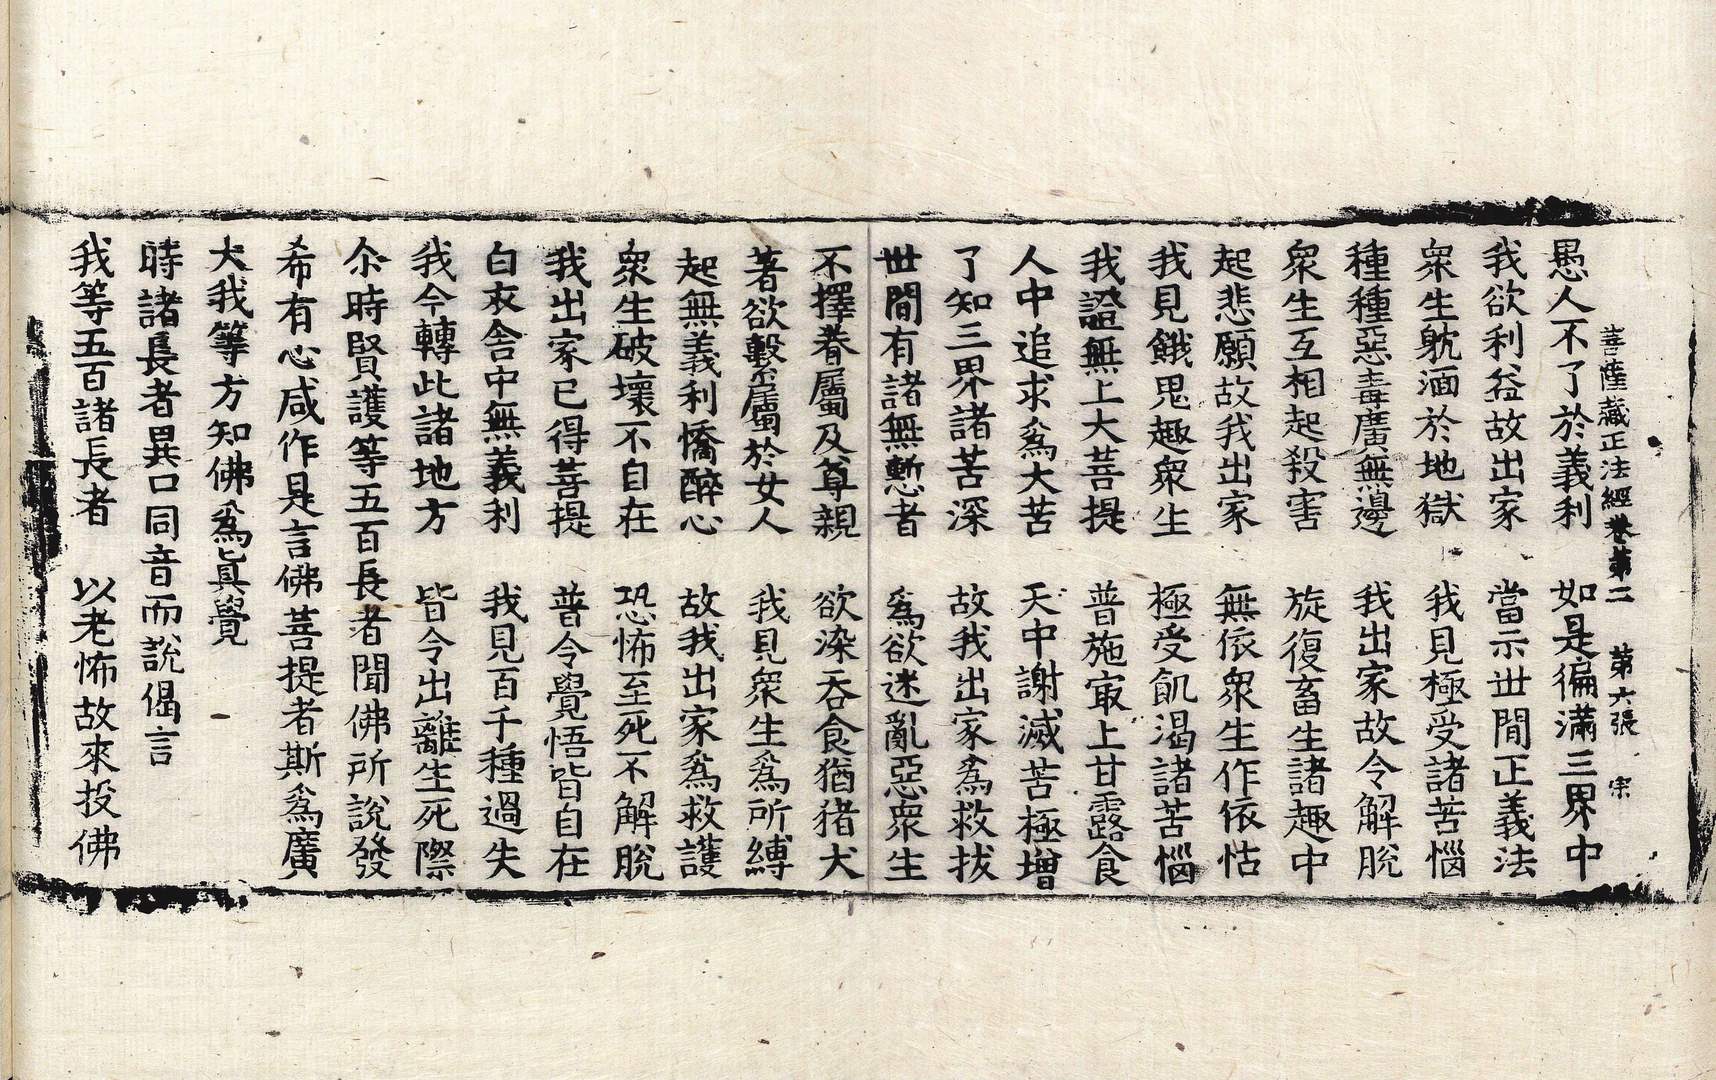 菩薩藏正法經卷第二　第六張　宗
愚人不了於義利　如是徧滿三界中
我欲利益故出家　當示世間正義法
衆生躭湎於地獄　我見極受諸苦惱
種種惡毒廣無邊　我出家故令解脫
衆生互相起殺害　旋復畜生諸趣中
起悲願故我出家　無依衆生作依怙
我見餓鬼趣衆生　極受飢渴諸苦惱
我證無上大菩提　普施㝡上甘露食
人中追求爲大苦　天中謝滅苦極增
了知三界諸苦深　故我出家爲救拔
世間有諸無慙者　爲欲迷亂惡衆生
不擇眷屬及尊親　欲染吞食猶猪犬
著欲繫屬於女人　我見衆生爲所縛
起無義利憍醉心　故我出家爲救護
衆生破壞不自在　恐怖至死不解脫
我出家已得菩提　普令覺悟皆自在
白衣舍中無義利　我見百千種過失
我今轉此諸地方　皆令出離生死際
尒時賢護等五百長者聞佛所說發
希有心咸作是言佛菩提者斯爲廣
大我等方知佛爲眞覺
時諸長者異口同音而說偈言
我等五百諸長者　以老怖故來投佛